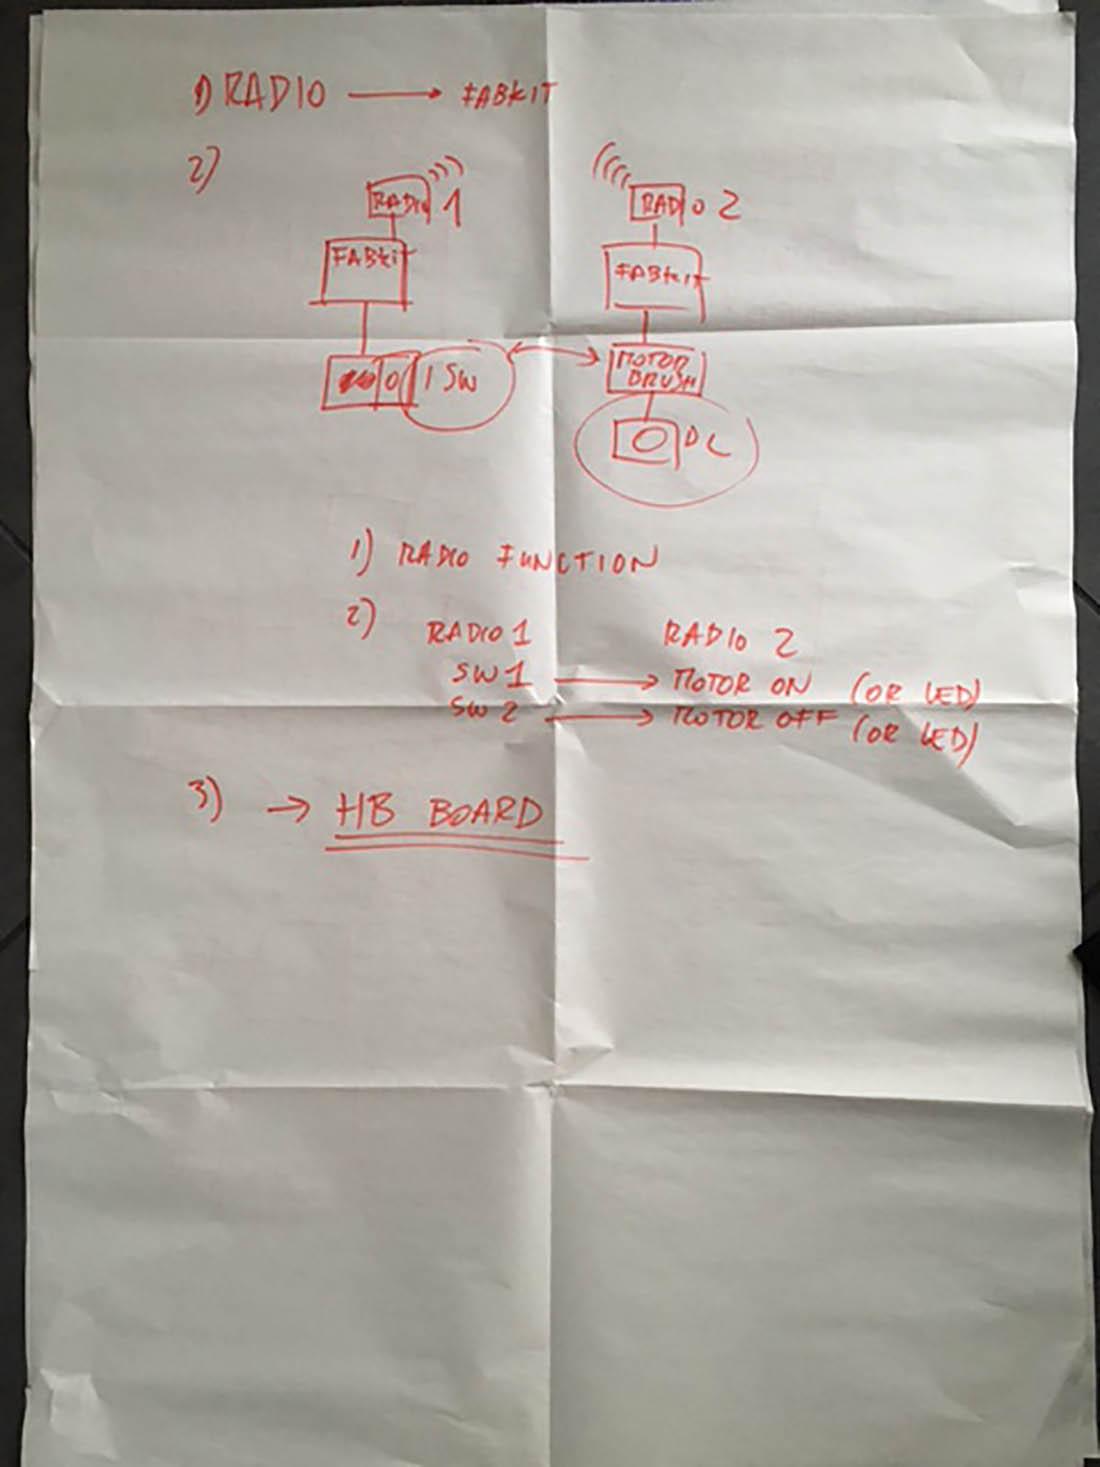 1) RADIO → FABKIT
2)
RADIO 1
RADIO 2
FABKIT
FABKIT
0 1 SW
MOTOR
BRUSH
DC
1) RADIO FUNCTION
2) RADIO 1 RADIO 2
SW 1 → MOTOR ON (OR LED)
SW 2 → MOTOR OFF (OR LED)
3) → HB BOARD